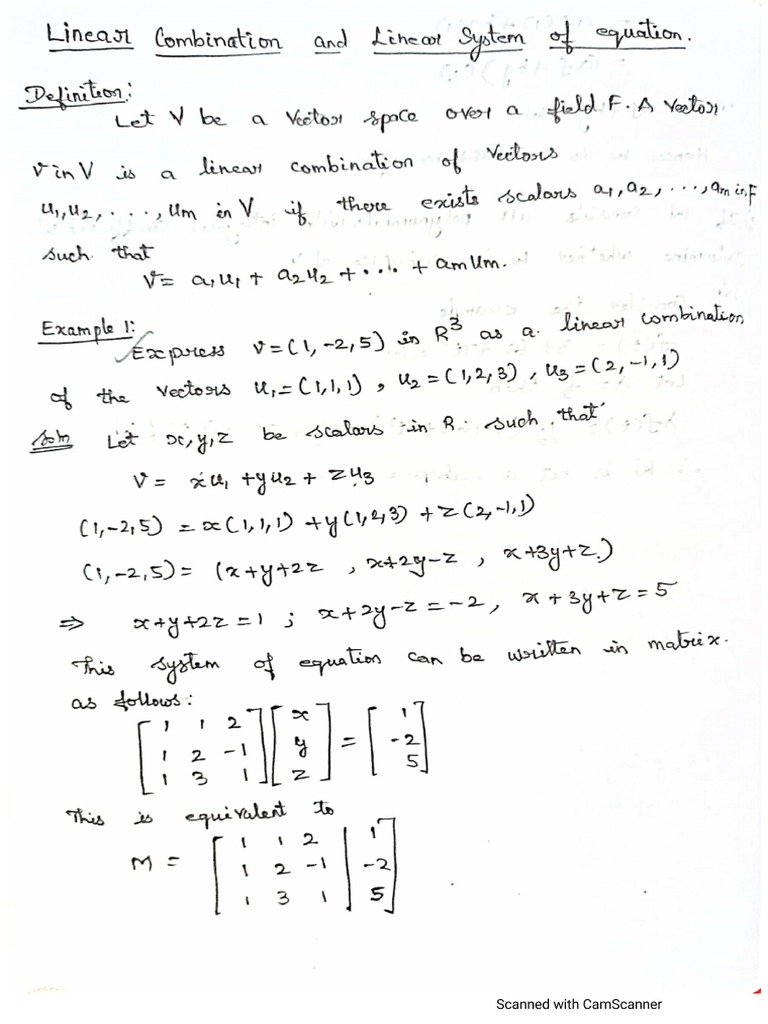 Linear Combination and Linear System of equation.
Definition:
Let V be a vector space over a field F. A vector
v in V is a linear combination of vectors
u1, u2, ..., um in V if there exists scalars a1, a2, ..., am in F
such that
v = a1u1 + a2u2 + .... + amum.
Example 1:
Express v = (1, -2, 5) in R³ as a linear combination
of the vectors u1 = (1,1,1) , u2 = (1,2,3) , u3 = (2,-1,1)
Soln Let x,y,z be scalars in R such that
v = xu1 + yu2 + zu3
(1,-2,5) = x(1,1,1) + y(1,2,3) + z(2,-1,1)
(1,-2,5) = (x+y+2z , x+2y-z , x+3y+z.)
⇒ x+y+2z = 1 ; x+2y-z = -2, x+3y+z = 5
This system of equation can be written in matrix.
as follows:
[1 1 2] [x] = [1]
[1 2 -1] [y] [-2]
[1 3 1] [z] [5]
This is equivalent to
M = [1 1 2 | 1]
[1 2 -1 | -2]
[1 3 1 | 5]
Scanned with CamScanner